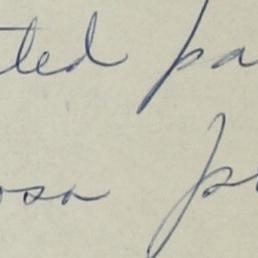 ted pa
osa p